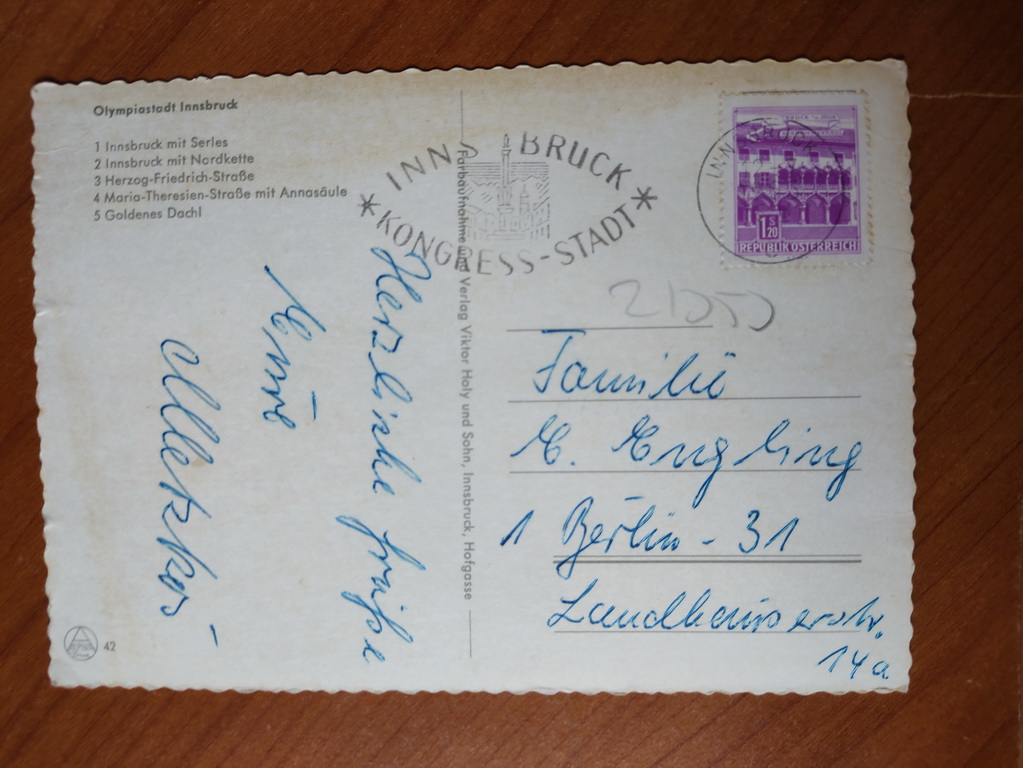 Olympiastadt Innsbruck
1 Innsbruck mit Serles
2 Innsbruck mit Nordkette
3 Herzog-Friedrich-Straße
4 Maria-Theresien-Straße mit Annasäule
5 Goldenes Dachl
INNSBRUCK
KONGRESS-STADT
REPUBLIK ÖSTERREICH
S
1 20
Verlag Viktor Holy und Sohn, Innsbruck, Hofgasse
Herzliche Grüße
Eure
Familie
E. Engling
1 Berlin - 31
Landhauserstr.
14a
42